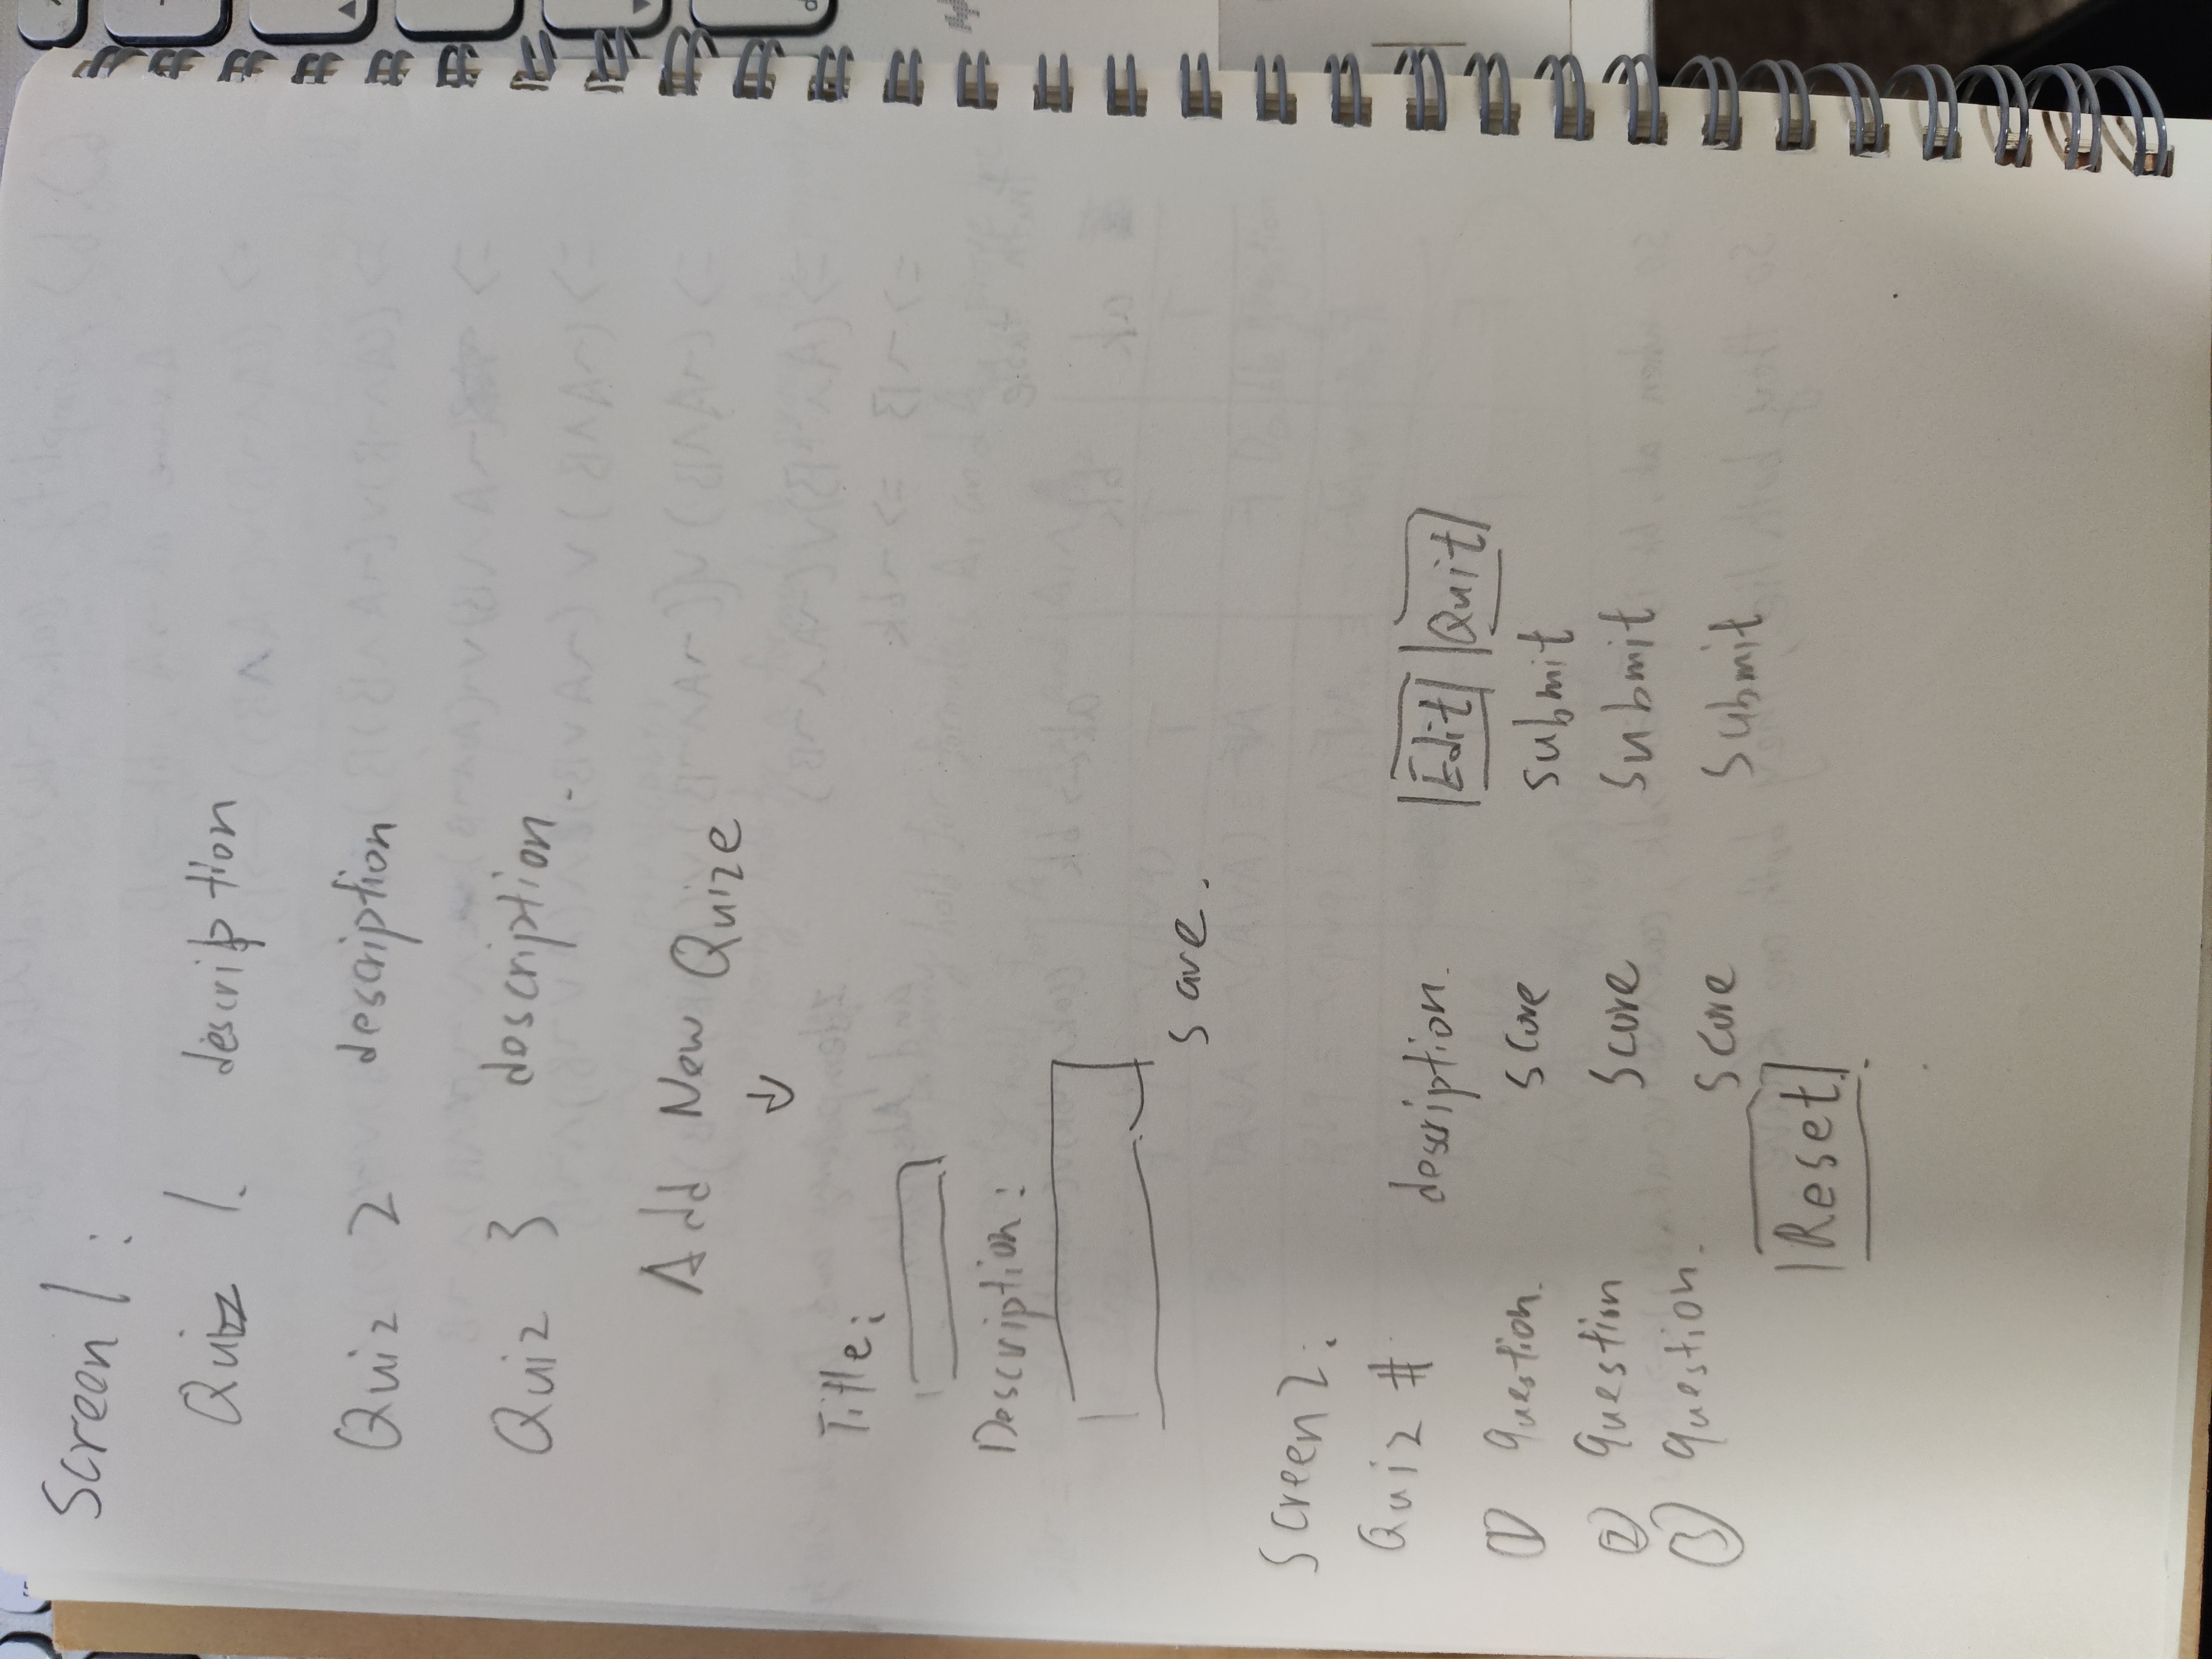 Screen 1:
Quiz 1. description
Quiz 2 description
Quiz 3 description.
Add New Quize
↓
Title:
Description:
save.
Screen 2:
Quiz # description. Edit Quit
① question. score submit
② question score submit
③ question. score submit
Reset